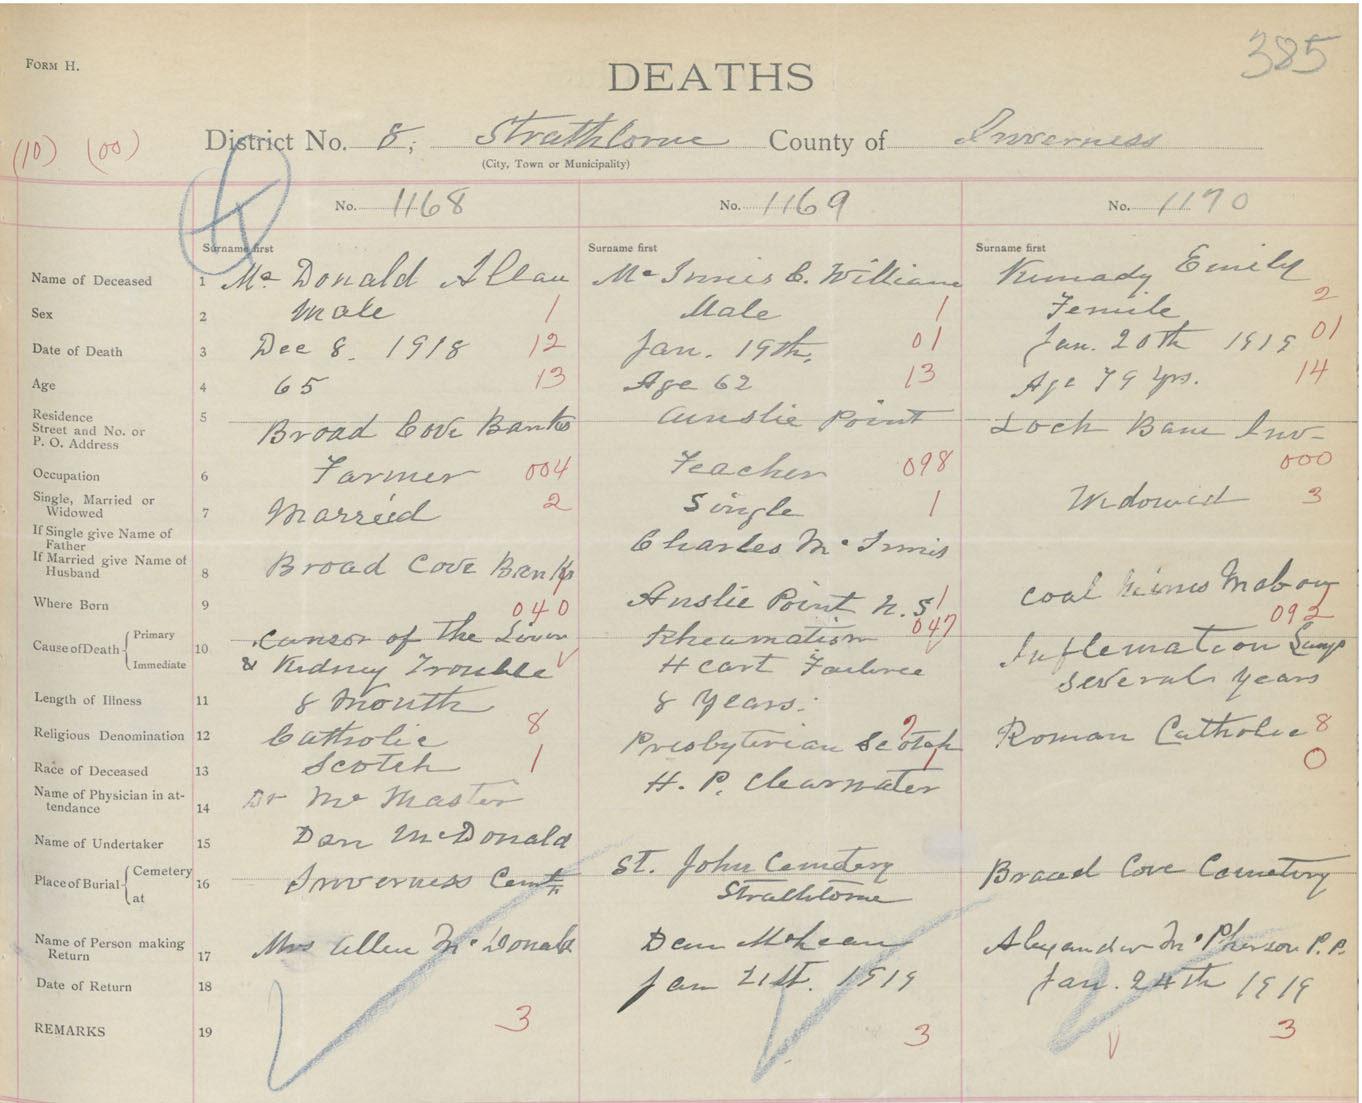 385
FORM H.
DEATHS
(10) (00) District No. 8, Strathlorne County of Inverness
(City, Town or Municipality)
No. 1168 No. 1169 No. 1170
Surname first Surname first Surname first
Name of Deceased 1 Mc Donald Allan Mc Innis C. William Kennady Emily
Sex 2 Male 1 Male 1 Femile 2
Date of Death 3 Dec 8, 1918 12 Jan. 19th, 01 Jan. 20th 1919 01
Age 4 65 13 Age 62 13 Age 79 yrs. 14
Residence
Street and No. or
P. O. Address 5 Broad Cove Banks Ainslie Point Loch Ban Inv-
Occupation 6 Farmer 004 Teacher 098 000
Single, Married or
Widowed 7 Married 2 Single 1 Widowed 3
If Single give Name of
Father Charles Mc Innis
If Married give Name of
Husband 8
Where Born 9 Broad Cove Banks 1 Ainslie Point N. S 1 Coal Mines Mabou 1
040 047 092
Cause of Death Primary Immediate 10 Cansor of the Liver Rheumatism Inflemation Lungs
& Kidney Trouble Heart Failure
Length of Illness 11 8 Month 8 Years. Several Years
Religious Denomination 12 Catholic 8 Presbyterian Scotch Roman Catholic 8
Race of Deceased 13 Scotch 1 1 0
Name of Physician in at-
tendance 14 Dr Mc Master H. P. Clearwater
Name of Undertaker 15 Dan McDonald
Place of Burial Cemetery at 16 Inverness Cemt. St. John Cemetery Broad Cove Cemetery
Strathlorne
Name of Person making
Return 17 Mrs Allen Mc Donald Dan McLean Alexander Mc Pherson P. P.
Date of Return 18 Jan 21st. 1919 Jan. 24th 1919
REMARKS 19 3 3 3